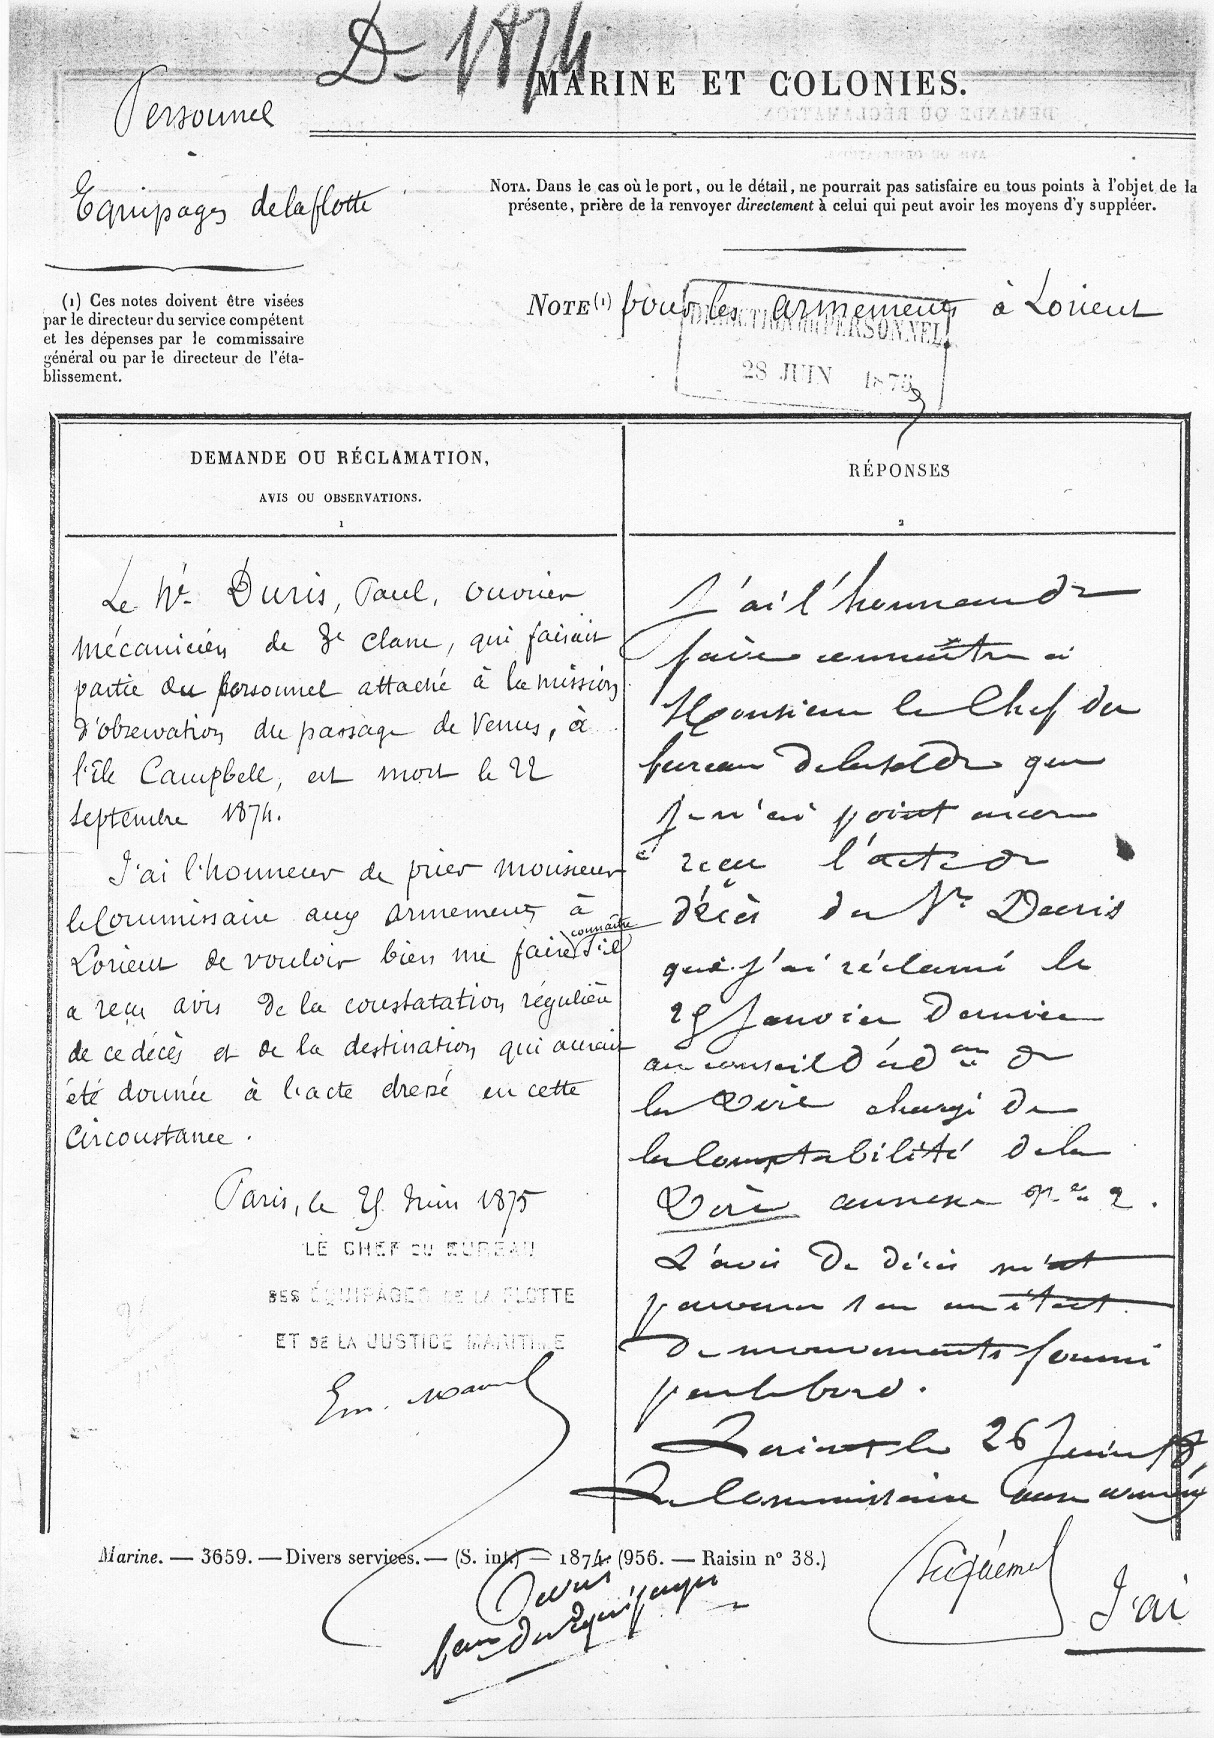 D- 1874
MARINE ET COLONIES.
Personnel
Equipages de la flotte
NOTA. Dans le cas où le port, ou le détail, ne pourrait pas satisfaire en tous points à l'objet de la
présente, prière de la renvoyer directement à celui qui peut avoir les moyens d'y suppléer.
(1) Ces notes doivent être visées
par le directeur du service compétent
et les dépenses par le commissaire
général ou par le directeur de l'éta-
blissement.
NOTE (1) pour les armements à Lorient
DIRECTION DU PERSONNEL
28 JUIN 1875
DEMANDE OU RÉCLAMATION,
AVIS OU OBSERVATIONS.
1
Le Né Duris, Paul, ouvrier
mécanicien de 3e classe, qui faisait
partie du personnel attaché à la mission
d'observation du passage de Venus, à
l'Ile Campbell, est mort le 22
septembre 1874.
J'ai l'honneur de prier monsieur
le Commissaire aux armements à
connaître
Lorient de vouloir bien me faire s'il
a reçu avis de la constatation régulière
de ce décès et de la destination qui aurait
été donnée à l'acte dressé en cette
circonstance.
Paris, le 25 Juin 1875
LE CHEF DU BUREAU
DES ÉQUIPAGES DE LA FLOTTE
ET DE LA JUSTICE MARITIME
RÉPONSES
2
J'ai l'honneur de
faire connaître à
Monsieur le Chef du
bureau de la solde que
je n'ai point encore
reçu l'acte de
décès du Né Duris
que j'ai réclamé le
25 Janvier dernier
au conseil d'adon de
la Vire chargé de
la Comptabilité de la
Vire annexe No 2.
L'avis de décès m'est
parvenu sur un état
de mouvements fourni
par le bord.
Lorient le 26 Juin
Le Commissaire aux
Marine. — 3659. — Divers services. — (S. int.) — 1874. (956. — Raisin n° 38.)
J'ai